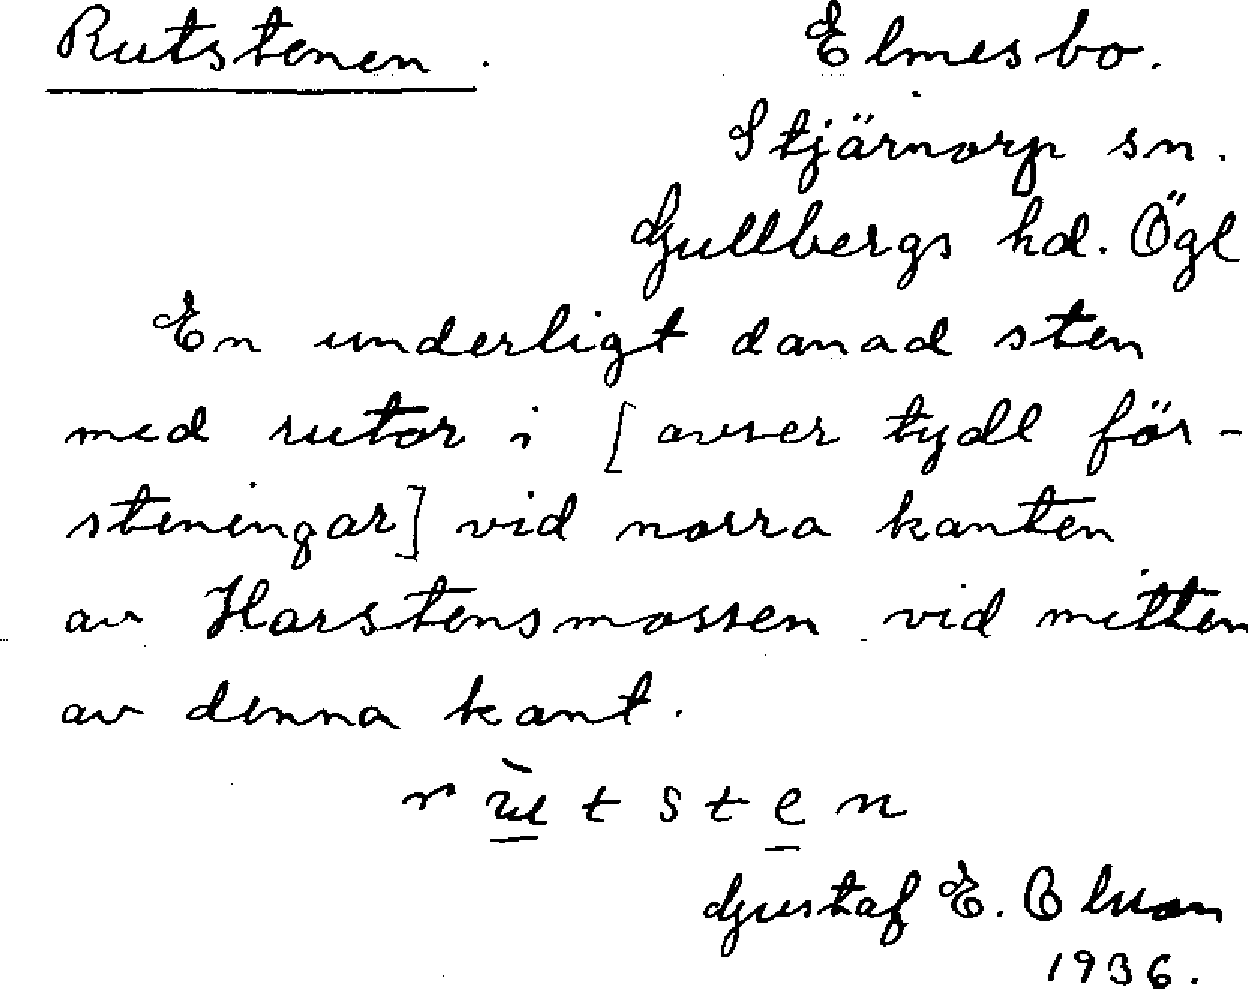 Rutstenen. Elmesbo.
Stjärnorp sn.
Gullbergs hd. Ögl
En underligt danad sten
med rutor i [avser tydl för-
steningar] vid norra kanten
av Harstensmossen vid mitten
av denna kant.
r ù t s t e n
Gustaf E. Olsson
1936.